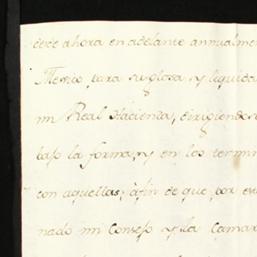 desde ahora en adelante anualmen
Mexico, para su glosa, y liquida
mi Real Hacienda, dirigiendos
bajo la forma, y en los termin
con aquellas; a fin de que por es
nado mi Consejo y la Camar